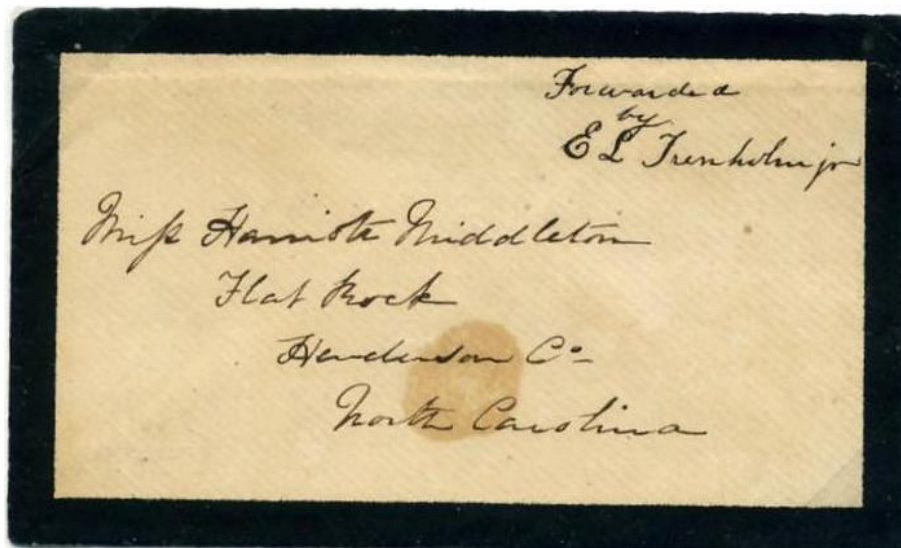 Forwarded
by
E L Trenholm jr
Miſs Harriott Middleton
Flat Rock
Henderson Co
North Carolina